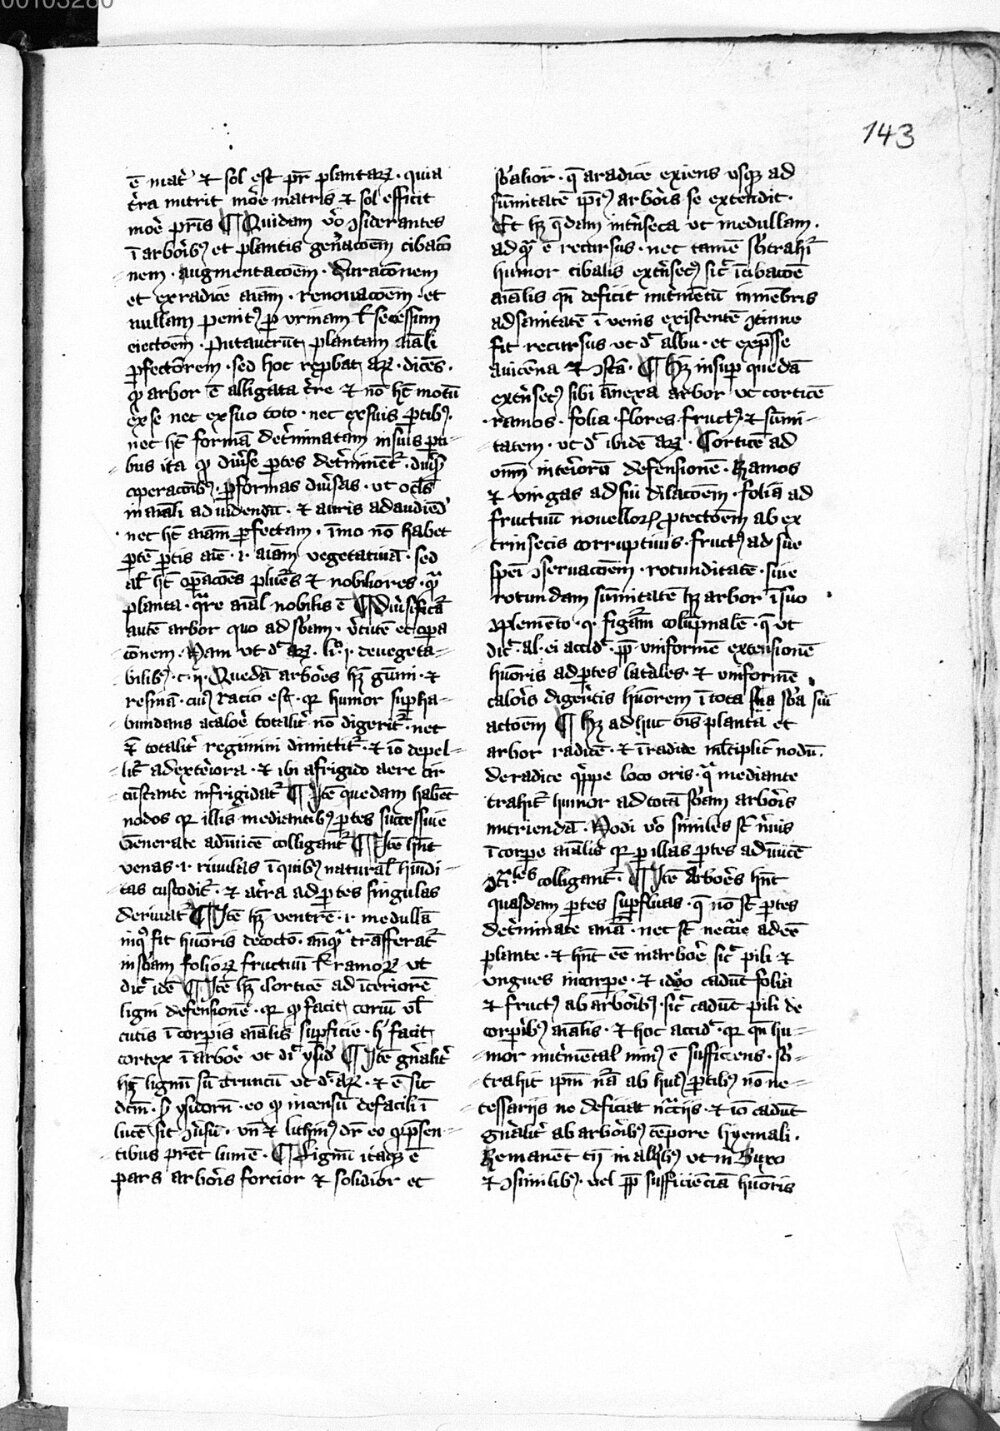 00103280
143
ē mat᷑ et sol est pr̄ plantaꝝ · quia
t᷑ra nutrit mōe matris et sol efficit
moē pr̄is ¶ Quidam v̊o ꝯsiderantes
ī arborib᷒ et plantis gen̄acōem cibacō
nem · augmentacōem · duracōnem
et ex radice aīam · renouacōem · et
nullam penit᷒ ꝑ vrinam l̄ secessum
eiectoēm · putauerūt plantam aīali
ꝑfectiorem · sed hoc rep̄bat aꝝ · dicēs ·
ꝙ arbor ē alligata t᷑re et nō hꝫ motū
ex se nec ex suo toto · nec ex suis ꝑtib᷒ ·
nec hꝫ formā det᷑minatam in suis ꝑti
bus ita ꝙ diu᷑se ꝑtes det᷑minēt᷑ · diu᷑s
operacōib᷒ · ꝑ formas diu᷑sas · ut ocl̄s
in aīali ad uidendū · et auris ad audiēd᷒
nec hꝫ aīam ꝑfectam · īmo nō habet
ꝑtē ꝑtis aīe · i · aīam vegetatiuā · sed
al᷑ hꝫ oꝑacōes plures et nobiliores · qᷓ
planta · qᷓre aīal nobilis ē ¶ Diu᷑sificat᷑
autē arbor quo ad sbām · v᷑tutē et opera
cōnem · Nam ut dꝫ aꝝ · li · i · de uegeta
bilib᷒ · c · ii · Quedā arbōes hn̄t gūmi · et
resinā · cui᷒ racio est · qꝛ humor suꝑha
bundans a calore totalit᷑ nō digerit᷑ · nec
ē totalit᷑ regimini dimittit᷑ · et iō depel
lit᷑ ad ext᷑iora · et ibi a frigido aere cir
cūstante infrigidat᷑ ¶ Itē quedam habēt
nodos qꝛ illis mediantib᷒ ꝑtes successiue
generate adinuicē colligant᷑ ¶ Itē hn̄t
venas · i · riuulas ī quib᷒ natural᷑ hu̅idi
tas custodit᷑ · et at᷑ra ad ꝑtes singulas
deriuat᷑ ¶ Itē hꝫ ventrē · i · medullā
in q̊ fit humoris decocto · anqᷓ trāfferat᷑
in sbām folioꝝ fructuū et ramoꝝ ut
dic̄ idē ¶ Itē hꝫ corticē ad īteriorē
ligni defensionē · qꝛ ꝙ facit coriū ul̄
cutis ī corꝑis aīalis suꝑficie · h᷒ facit
cortex ī arboē ut dic̄ ysid᷒ ¶ Itē gn̄alit᷑
hꝫ lignū siue truncū ut dꝫ aꝝ · et ē sic
dcm̄ · ysidorū · eo ꝙ incensū de facili ī
lucē sit ꝯuersū · vn̄ et lichin᷒ dr̄ eo
tibus p᷑bet lumē · ¶ Lignū itaqꝫ ē
pars arboris forcior et solidior et
sb̄alior · q̄ a radice exiens usqꝫ ad
sūmitatē ip̄i᷒ arboris se extendit ·
Et hꝫ q̄dam int᷑nseca ut medullam ·
ad qᷓ ē recursus · nec tamē sb̄trahit᷑
humor cibalis ext᷑nsec᷒ sic᷑ ī cibacōe
aīalis qn̄ deficit nut᷑mētū in mēbris
ad sanitatē ī uenis existentē ꝯtinue
fit recursus ut dꝫ albu · et exp̄sse
auicēna et ꝯstā · ¶ Hꝫ insuꝑ quedā
ext᷑nsec᷒ sibi annexa arbor ut corticē
ramos · folia · flores · fruct᷒ · et sūmi
tatem · ut dꝫ ibidē aꝝ · Corticē ad
om̄m interiorū defensionē · Ramos
et virgas ad sui dilacōem · foliā ad
fructuū nouelloꝝ ꝓtectoēm ab ex
trinsecis corruptiuis · fruct᷒ ad sue
spēi ꝯseruacōem · rotunditatē · siue
rotundam sūmitatē hꝫ arbor ī suo
ꝯplemēto · qꝛ figūam colūpnalē · q̄ ut
dic̄ · al · ei accid᷑ · ꝓp̄ uniformē extensionē
hūoris ad ꝑtes lat᷑ales · et uniformē
caloris digerētis hūorem ī tota sua sb̄a sui
actoēm ¶ Hꝫ adhuc om̄s planta et
arbor radicē · et ī radice ml̄tiplicē nodū ·
de radice quippe loco oris · qᷓ mediante
trahit᷑ humor ad totā sb̄am arboris
nutriendā · Nodi v̊o similes st̄ neruis
ī corꝑe aīalis qꝛ ꝑ illas ꝑtes adinuicē
colligant᷑ · ¶ Itē arbōes hn̄t
quasdam ꝑtes suꝑfluas · q̄ nō st̄ ꝑtes
det᷑minate aīa · nec st̄ necc̄ie ad eē
plante · et hn̄t eē in arboē sic᷑ pili et
ungues in corꝑe · et idc̊o cadūt folia
et fruct᷒ ab arborib᷒ · sic᷑ cadūt pili de
corꝑib᷒ aīalis · et hoc accid᷑ · qꝛ qn̄ hu
mor nut᷑mental᷑ min᷒ ē sufficiens · sb̄
trahit ip̄m nā ab hui᷒ ꝑtib᷒ nō ne
cessariis ne deficiat nēcc̄iis · et iō cadūt
gn̄alit᷑ ab arborib᷒ tēpore hyemali ·
Remanēt tn̄ in alb᷒ ut in Buxo
et ꝯsimilib᷒ · vel ꝓp̄ sufficiēciā hūoris